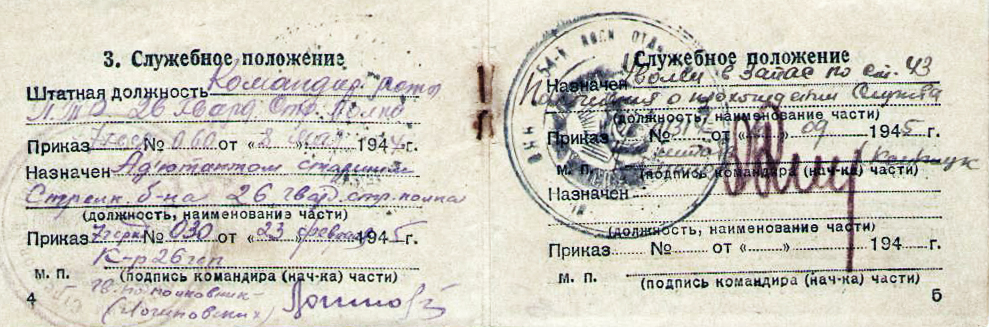 3. Служебное положение
Штатная должность Командир роты
П.Т.Р. 26 Гвард. Стр. Полка
Приказ № 060 от « 8 » мая 1944 г.
Назначен Адъютантом старшим
Стрелк. б-на 26 гвард. стр. полка
(должность, наименование части)
Приказ 7 гвск № 030 от « 23 » февраля 1945 г.
К-р 26 гсп
м. п. (подпись командира (нач-ка) части)
гв. подполковник
(Логиновских)
4
Служебное положение
Назначен Уволен в запас по ст. 43
Положения о прохождении службы
(должность, наименование части)
Приказ № от « » 09 1945 г.
м. п. (подпись командира (нач-ка) части)
Назначен
(должность, наименование части)
Приказ № от « » 194 г.
м. п. (подпись командира (нач-ка) части)
5